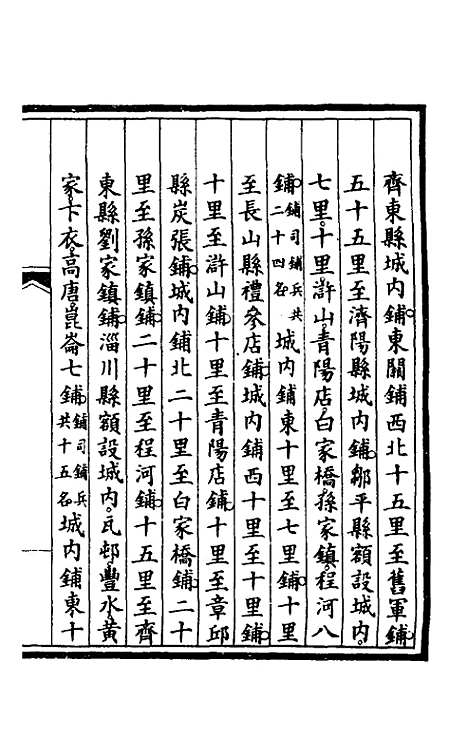 齊東縣城内鋪東關鋪西北十五里至舊軍鋪
五十五里至濟陽縣城内鋪鄒平縣額設城内
七里十里滸山青陽店白家橋孫家鎮程河八
鋪鋪司鋪兵共二十四名城内鋪東十里至七里鋪十里
至長山縣禮參店鋪城内鋪西十里至十里鋪
十里至滸山鋪十里至青陽店鋪十里至章邱
縣炭張鋪城内鋪北二十里至白家橋鋪二十
里至孫家鎮鋪二十里至程河鋪十五里至齊
東縣劉家鎮鋪淄川縣額設城内瓦邨豐水黄
家卞衣高唐崑崙七鋪鋪司鋪兵共十五名城内鋪東十